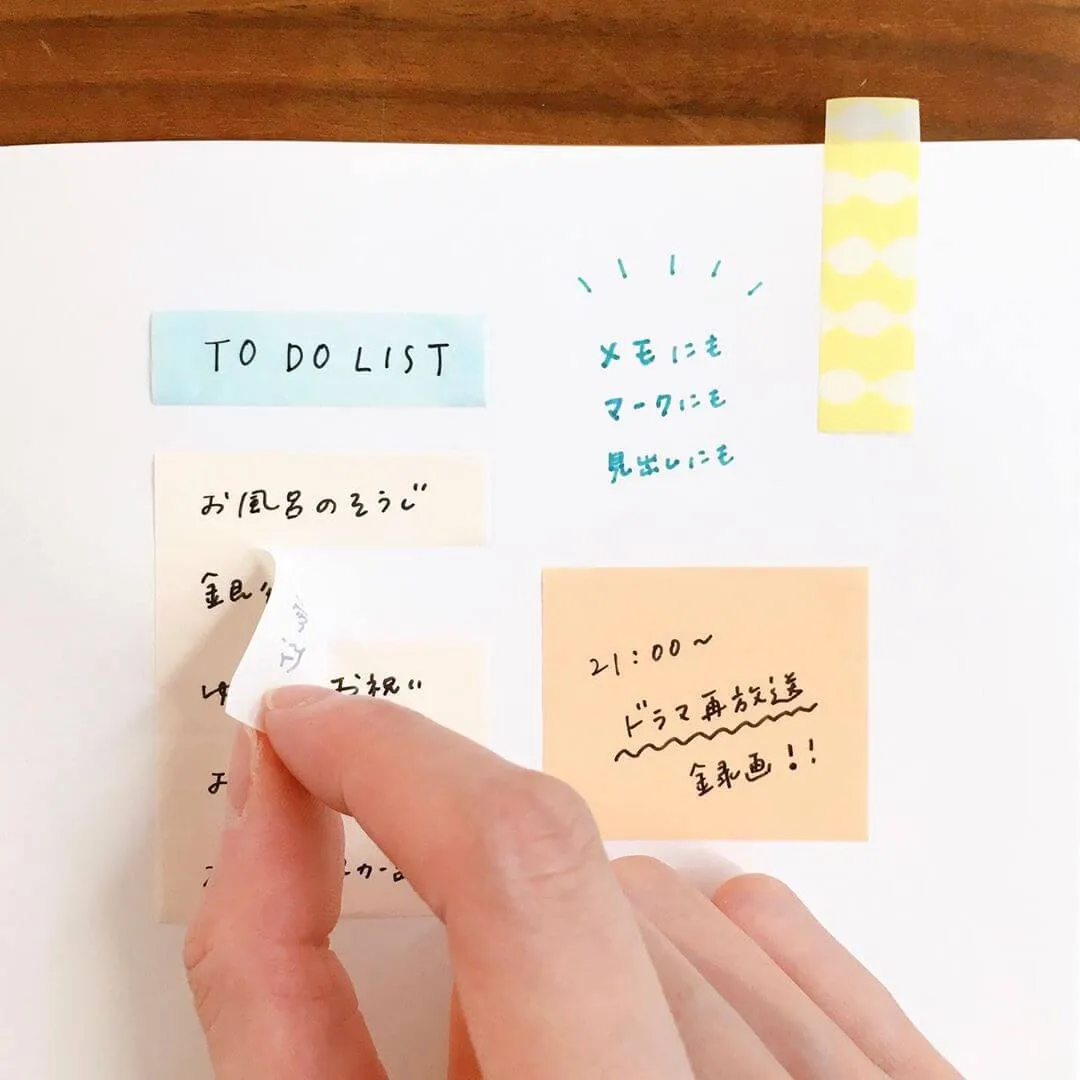 TO DO LIST
お風呂のそうじ
お祝い
メモにも
マークにも
見出しにも
21:00~
ドラマ再放送
録画!!